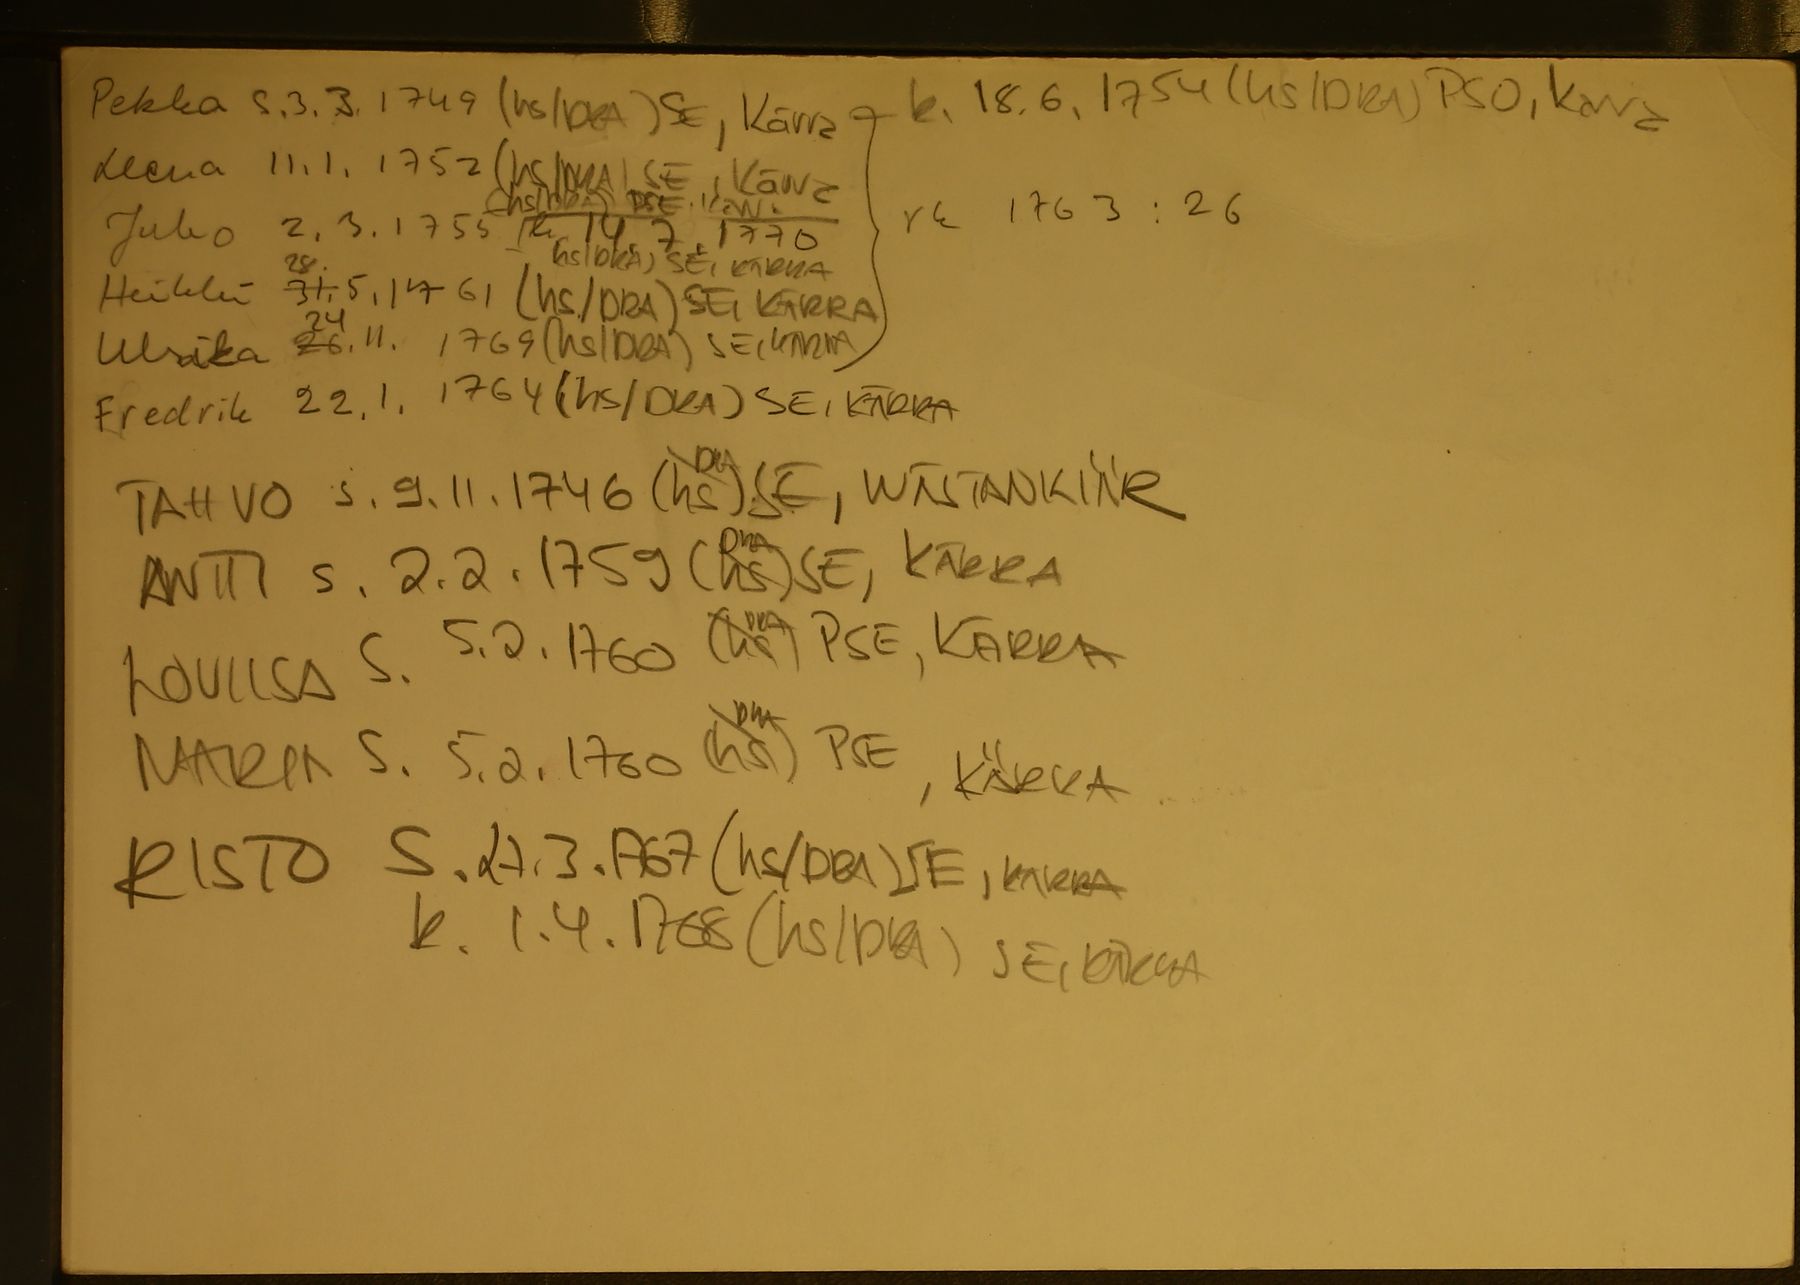 Pekka s. 3. 3. 1749 (hs/DRA) SE, Kärra k. 18. 6. 1754 (hs/DRA) PSO, Kärra
Leena 11. 1. 1752 (hs/DRA) SE, Kärra
(hs/DRA) PSE,
Juho 2. 3. 1755 k. 14 7. 1770 rk 1763 : 26
hs/DRA) SE, KÄRRA
28.
Heikki 31. 5. 1761 (hs/DRA) SE, KÄRRA
24
Ulrika 26. 11. 1769 (hs/DRA) SE, KÄRRA
Fredrik 22. 1. 1764 (hs/DRA) SE, KÄRRA
DRA
TAHVO s. 9. 11. 1746 (hs) SE, WÄSTANKIÄR
DRA
ANTTI s. 2. 2. 1759 (hs) SE, KÄRRA
DRA
LOVIISA S. 5. 2. 1760 (hs) PSE, KÄRRA
DRA
MARIA S. 5. 2. 1760 (hs) PSE, KÄRRA
RISTO S. 27. 3. 1767 (hs/DRA) SE, KÄRRA
k. 1. 4. 1768 (hs/DRA) SE, KÄRRA